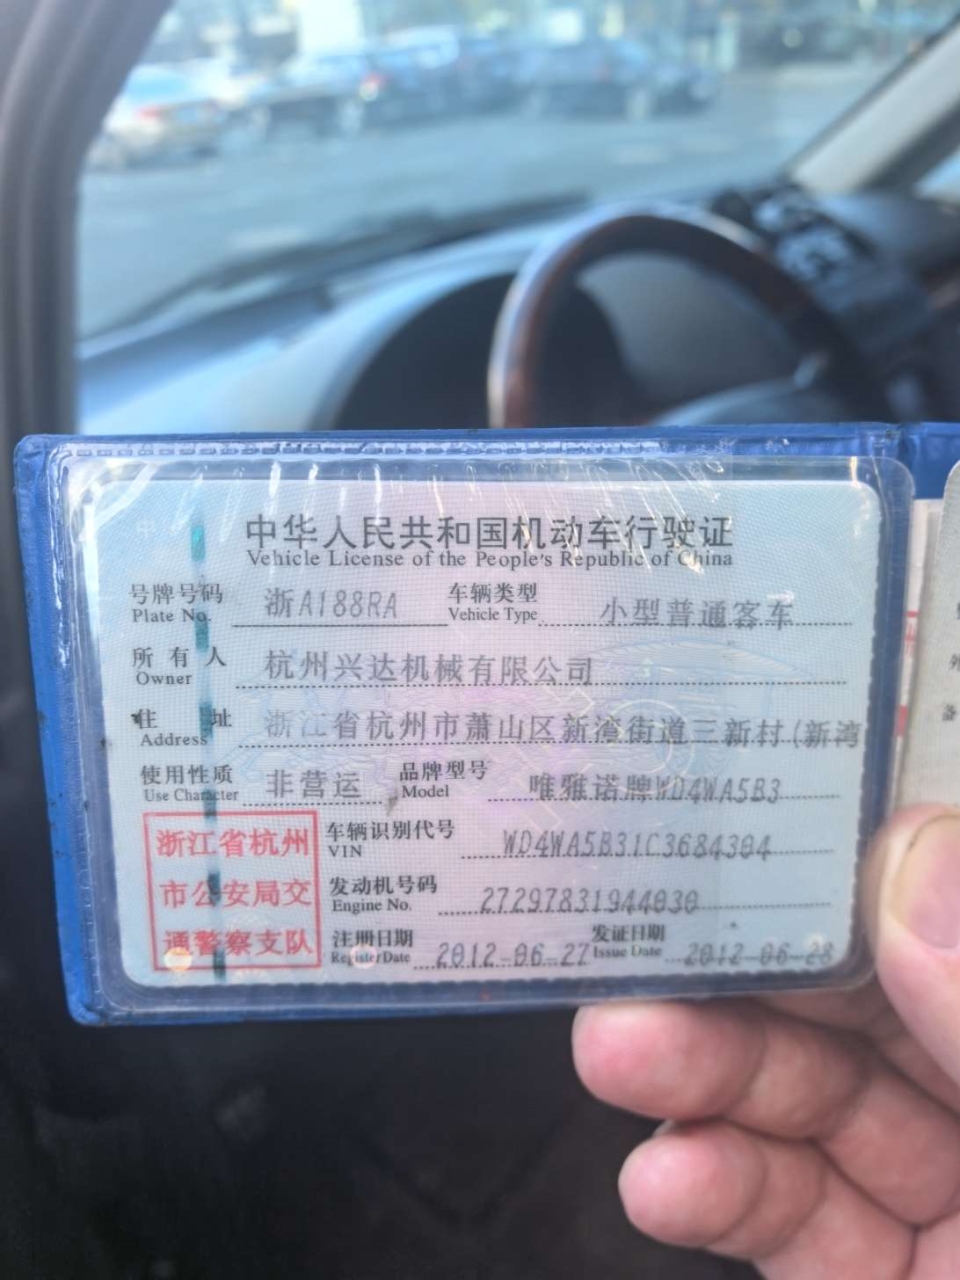 中华人民共和国机动车行驶证
Vehicle License of the People's Republic of China
号牌号码 浙A188RA 车辆类型 小型普通客车
Plate No. Vehicle Type
所有人 杭州兴达机械有限公司
Owner
住址 浙江省杭州市萧山区新湾街道三新村(新湾
Address
使用性质 非营运 品牌型号 唯雅诺牌WD4WA5B3
Use Character Model
浙江省杭州 车辆识别代号 WD4WA5B31C3684304
VIN
市公安局交 发动机号码 27297831944030
Engine No.
通警察支队 注册日期 2012-06-27 发证日期 2012-06-28
Register Date Issue Date
外
备